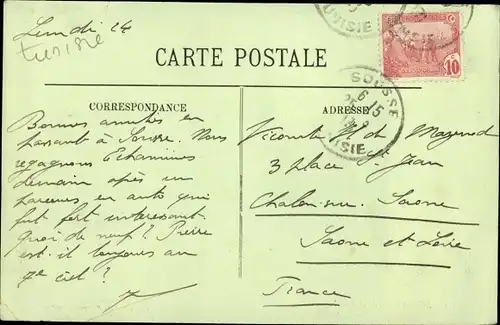 Lundi 24
Tunisie
CARTE POSTALE
CORRESPONDANCE
ADRESSE
SOUSSE
6-15
TUNISIE
10
Bonnes amitiés en
passant à Sousse. Nous
regagnons
demain après un
parcours en auto qui
fut fort intéressant.
Quoi de neuf? Pierre
est-il toujours au
7e ciel?
Vicomte H. de Mazenod
3 place St Jean
Chalon-sur-Saone
Saone et Loire
France